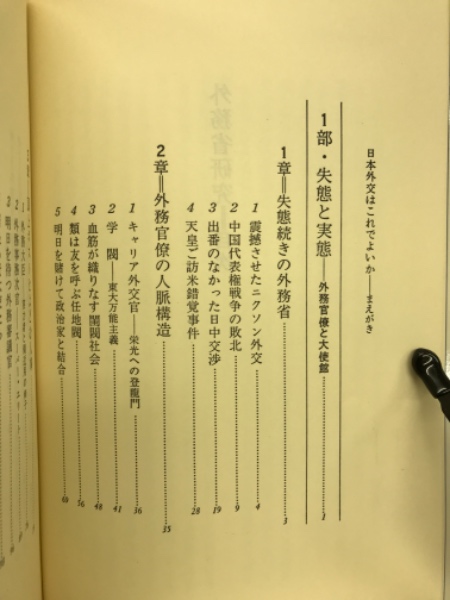 日本外交はこれでよいか——まえがき
1部・失態と実態——外務官僚と大使館……1
1章=失態続きの外務省……3
1 震撼させたニクソン外交……4
2 中国代表権戦争の敗北……9
3 出番のなかった日中交渉……19
4 天皇ご訪米錯覚事件……28
2章=外務官僚の人脈構造……35
1 キャリア外交官——栄光への登龍門……36
2 学閥——東大万能主義……41
3 血筋が織りなす閨閥社会……48
4 類は友を呼ぶ任地閥……56
5 明日を賭けて政治家と結合……60
外務省研究
1 外務大臣
2 外務事務次官
3 明日を待つ外務審議官